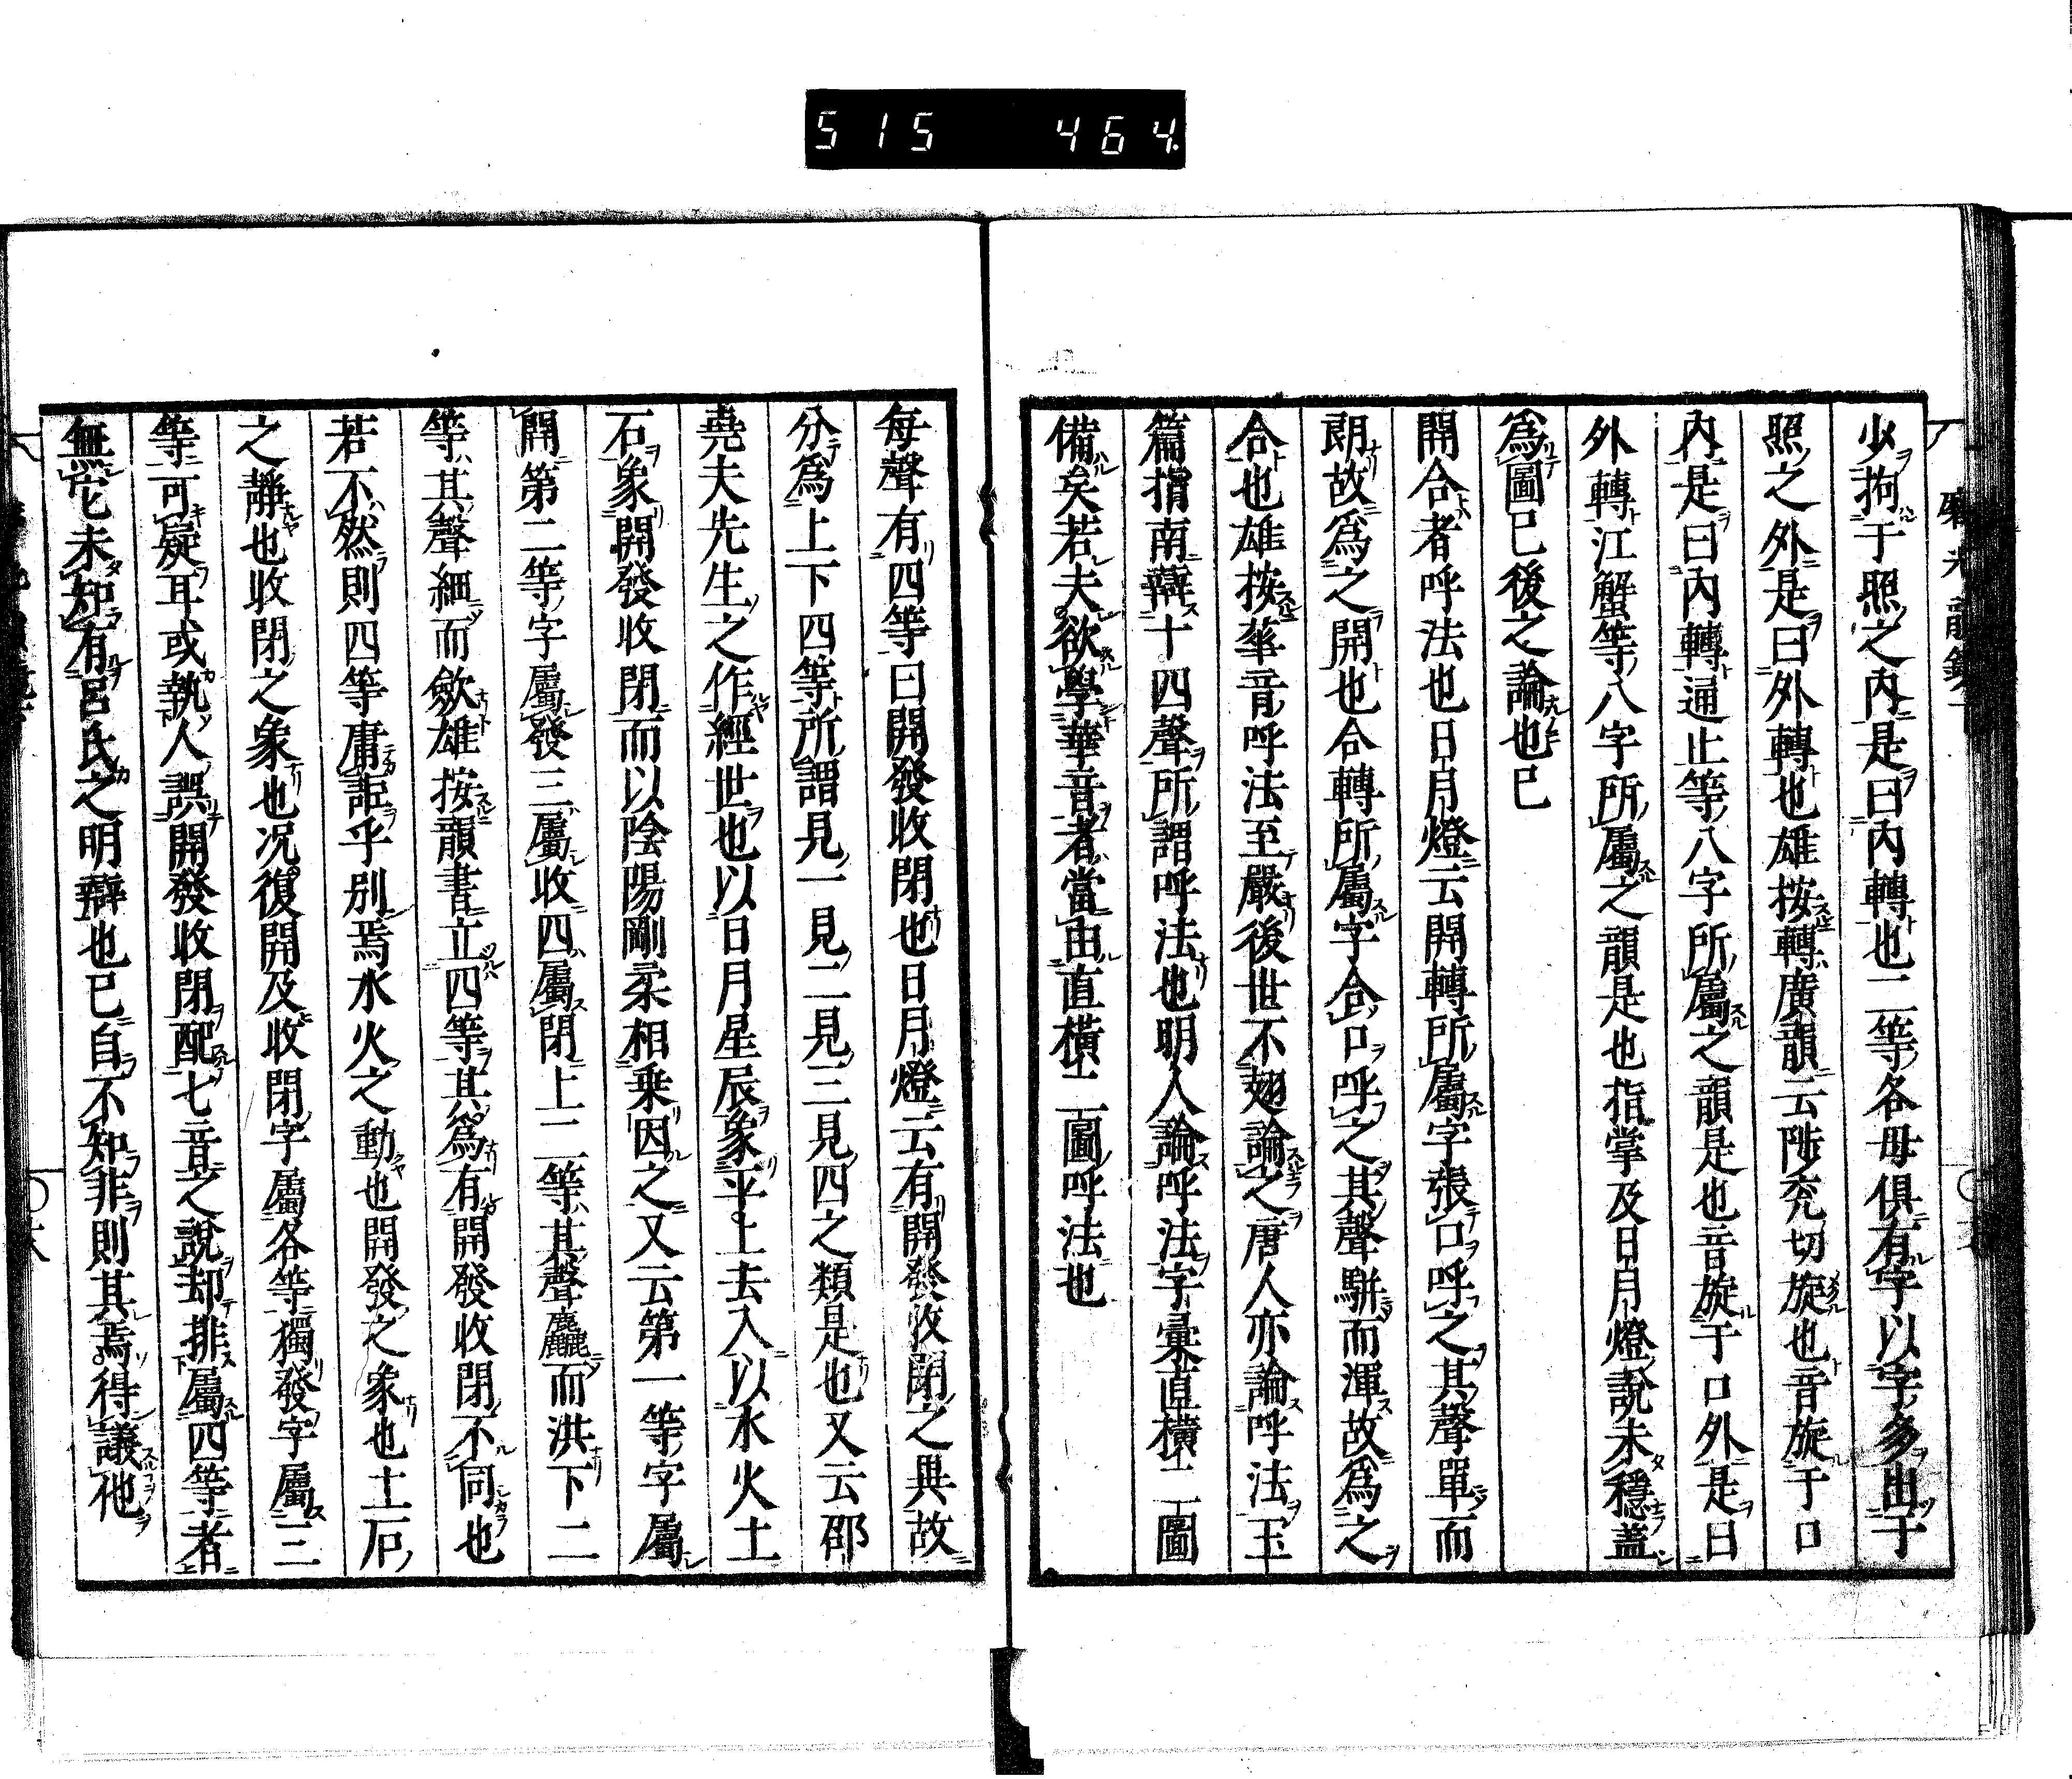 515 464
少拘于照之内是曰内轉也二等各母俱有字以字多出于
照之外是曰外轉也雄按轉廣韻云陟兖切旋也音旋于口
内是曰内轉通止等八字所屬之韻是也音旋于口外是曰
外轉江蟹等八字所屬之韻是也指掌及日月燈說未穩蓋
爲圖已後之論也已
開合者呼法也日月燈云開轉所屬字張口呼之其聲單而
朗故爲之開也合轉所屬字合口呼之其聲駢而渾故爲之
合也雄按華音呼法至嚴後世不翅論之唐人亦論呼法玉
篇指南辯十四聲所謂呼法也明人論呼法字彙直橫二圖
備矣若夫欲學華音者當由直橫二圖呼法也
每聲有四等曰開發收閉也日月燈云有開發收閉之異故
分爲上下四等所謂見一見二見三見四之類是也又云邵
堯夫先生之作經世也以日月星辰象平上去入以水火土
石象開發收閉而以陰陽剛柔相乘因之又云第一等字屬
開第二等字屬發三屬收四屬閉上二等其聲麤而洪下二
等其聲細而斂雄按韻書立四等其爲有開發收閉不同也
若不然則四等庸詎乎別焉水火之動也開發之象也土石
之靜也收閉之象也况復開及收閉字屬各等獨發字屬三
等可疑耳或執人誤開發收閉配七音之說却排屬四等者
無它未知有呂氏之明辯也已自不知非則其焉得議他